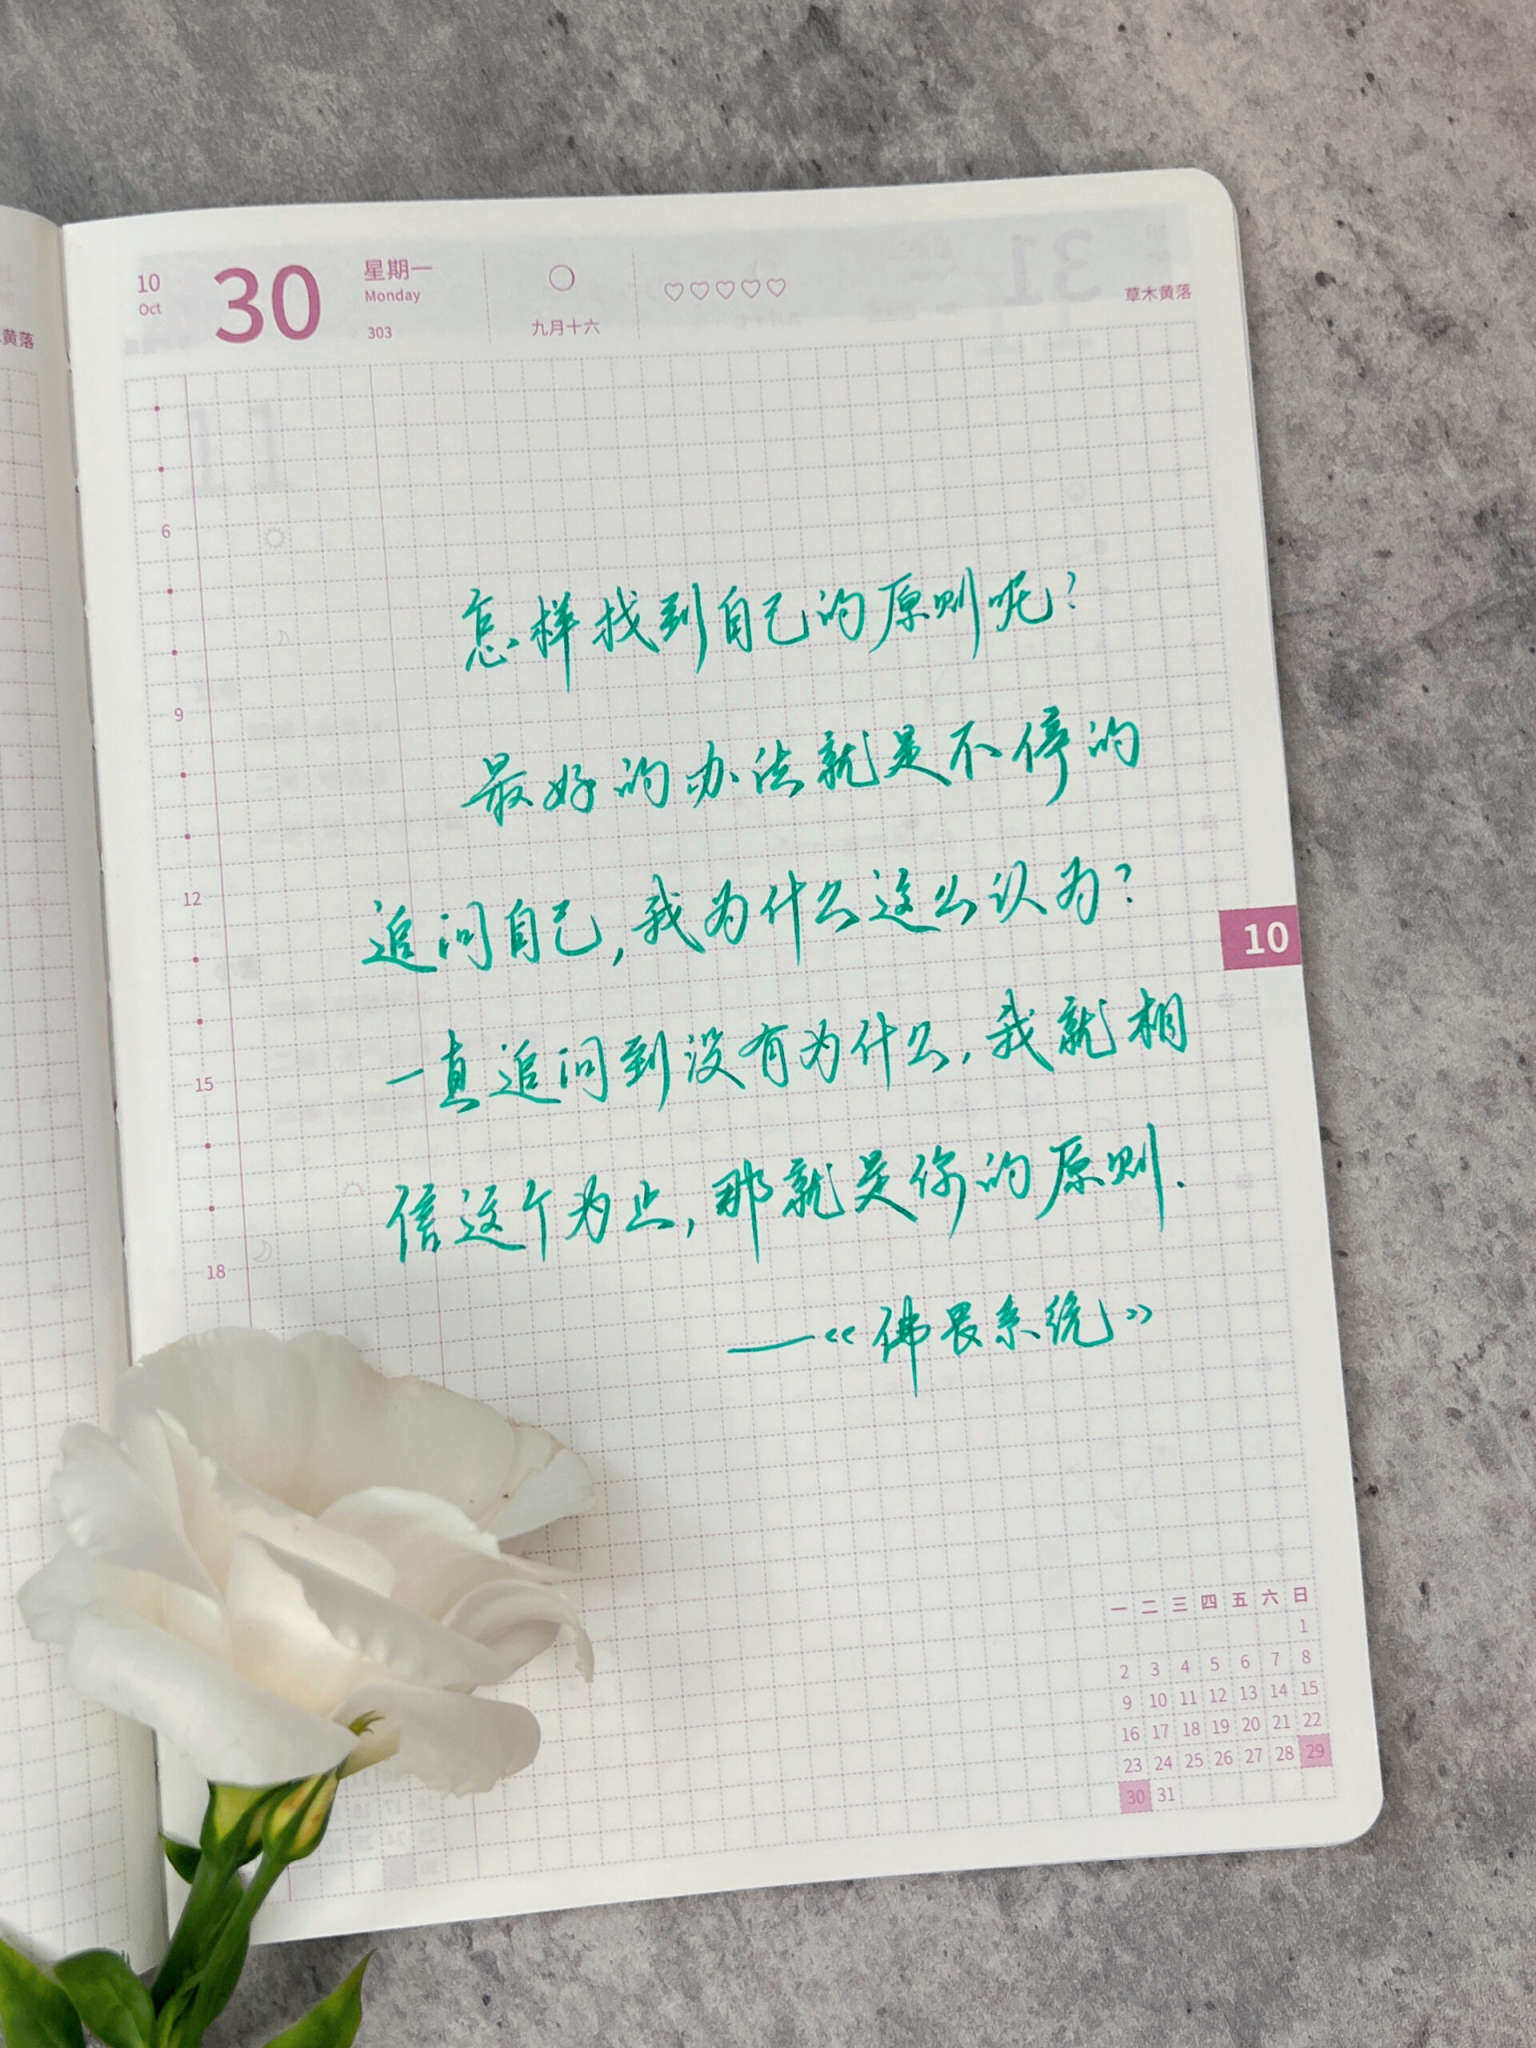 10
Oct
30
星期一
Monday
303
九月十六
草木黄落
黄落
6
9
12
15
18
怎样找到自己的原则呢？
最好的办法就是不停的
追问自己，我为什么这么认为？
一直追问到没有为什么，我就相
信这个为止，那就是你的原则．
——《佛畏系统》
10
一 二 三 四 五 六 日
1
2 3 4 5 6 7 8
9 10 11 12 13 14 15
16 17 18 19 20 21 22
23 24 25 26 27 28 29
30 31